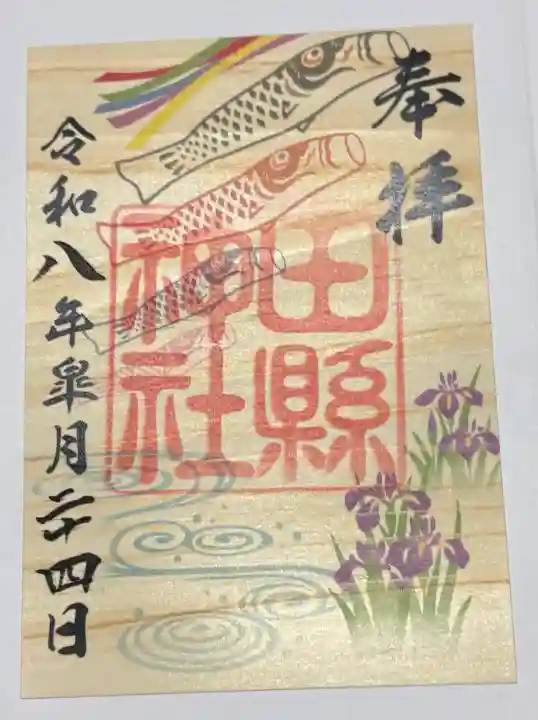 奉拝
田縣
神社
令和八年皐月二十四日